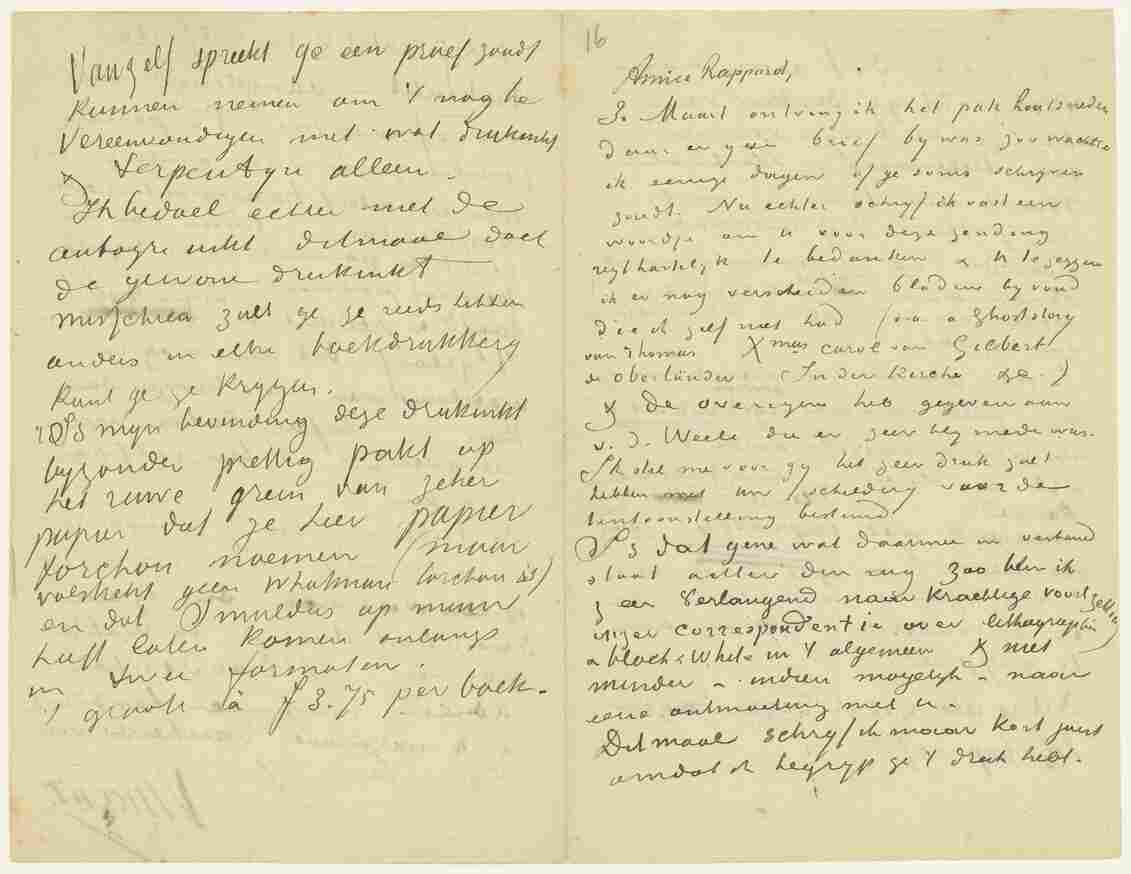 Van zelf spreekt ge een proef zoudt
kunnen nemen om 't nog te
Vereenvoudigen met wat drukinkt
& terpentijn alleen.
Ik bedoel echter met de
autogr. inkt ditmaal doel
de gewone drukinkt
misschien zult ge ze reeds hebben
anders in elke boekdrukkery
kunt ge ze krygen.
't Is myn bevinding deze drukinkt
byzonder prettig pakt op
het ruwe grein van zeker
papier dat ze hier papier
torchon noemen (maar
volstrekt geen Whatman torchon is)
en dat Smulders op myn
heeft laten komen onlangs
in twee formaten.
't groote à f 3.75 per boek.
16
Amice Rappard,
In Maart ontving ik het pak houtsneden
daar er geen brief by was zoo wachtte
ik eenige dagen of ge soms schryven
zoudt. Nu echter schryf ik vast een
woordje om U voor deze zending
regt hartelyk te bedanken & U te zeggen
ik er nog verscheiden bladen by vond
die ik zelf niet had (o.a. a Ghoststory
van Thomas Xmas carol van Gilbert
de Oberländer (In der Kirche &c.)
& de overigen heb gegeven aan
v. d. Weele die er zeer bly mede was.
Ik stel me voor gy het zeer druk zult
hebben met inscheeping voor de
tentoonstelling bestemd
Is dat gene wat daarmee in verband
staat achter den rug zoo ben ik
zeer Verlangend naar krachtige voortzetting
onzer correspondentie over lithographie
& black & White in 't algemeen & niet
minder – indien mogelyk – naar
eene ontmoeting met U.
Ditmaal schryf ik maar kort juist
omdat ik begryp ge 't druk hebt.